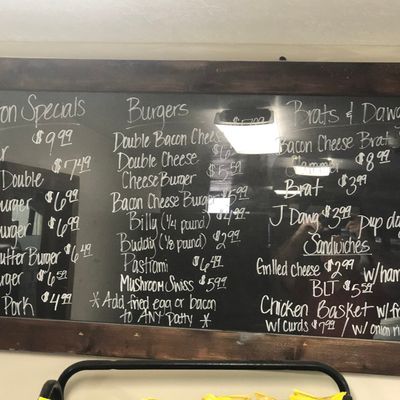 on Specials
$9.99
$7.49
Double
$6.99
urger
$6.99
urger
$6.49
utter Burger
rger $6.59
Pork $4.99
Burgers
Double Bacon Cheese
Double Cheese
Cheese Burger
Bacon Cheese Burger
Billy (1/4 pound)
Buddy (1/8 pound) $2.99
Pastrami $6.49
Mushroom Swiss $5.99
*Add fried egg or bacon
to Any Patty *
Brats & Dawg
Bacon Cheese Brat
$8.99
Brat $3.99
J Dawg $3.99
Pup da
Sandwiches
Grilled cheese $2.99 w/ham
BLT $5.99
Chicken Basket w/f
w/curds $7.99 / w/onion